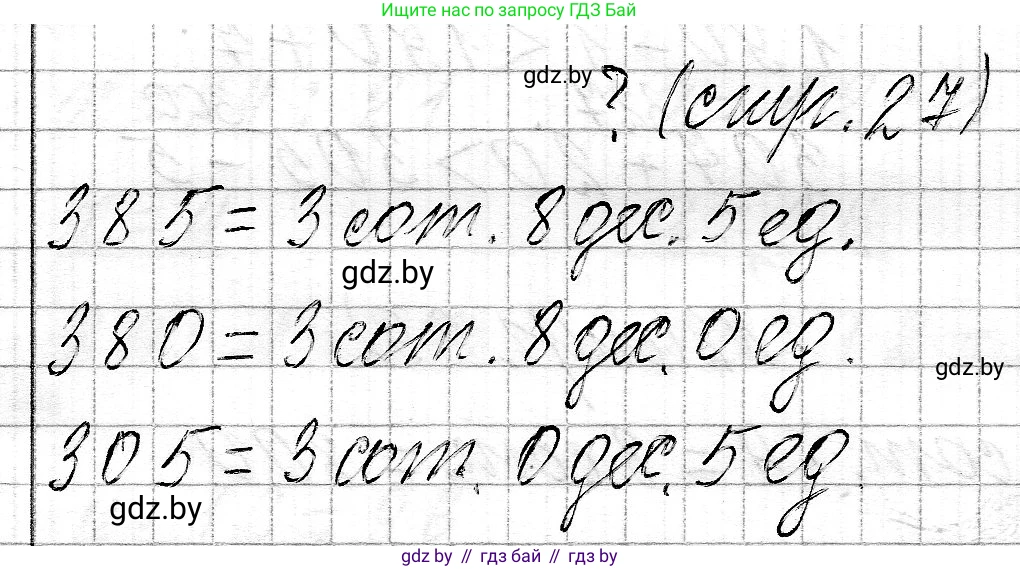 Ищите нас по запросу ГДЗ Бай
gdz.by
? (стр. 27)
385 = 3 сот. 8 дес. 5 ед.
gdz.by
380 = 3 сот. 8 дес. 0 ед.
gdz.by
305 = 3 сот. 0 дес. 5 ед
gdz.by
gdz.by // гдз бай // gdz by